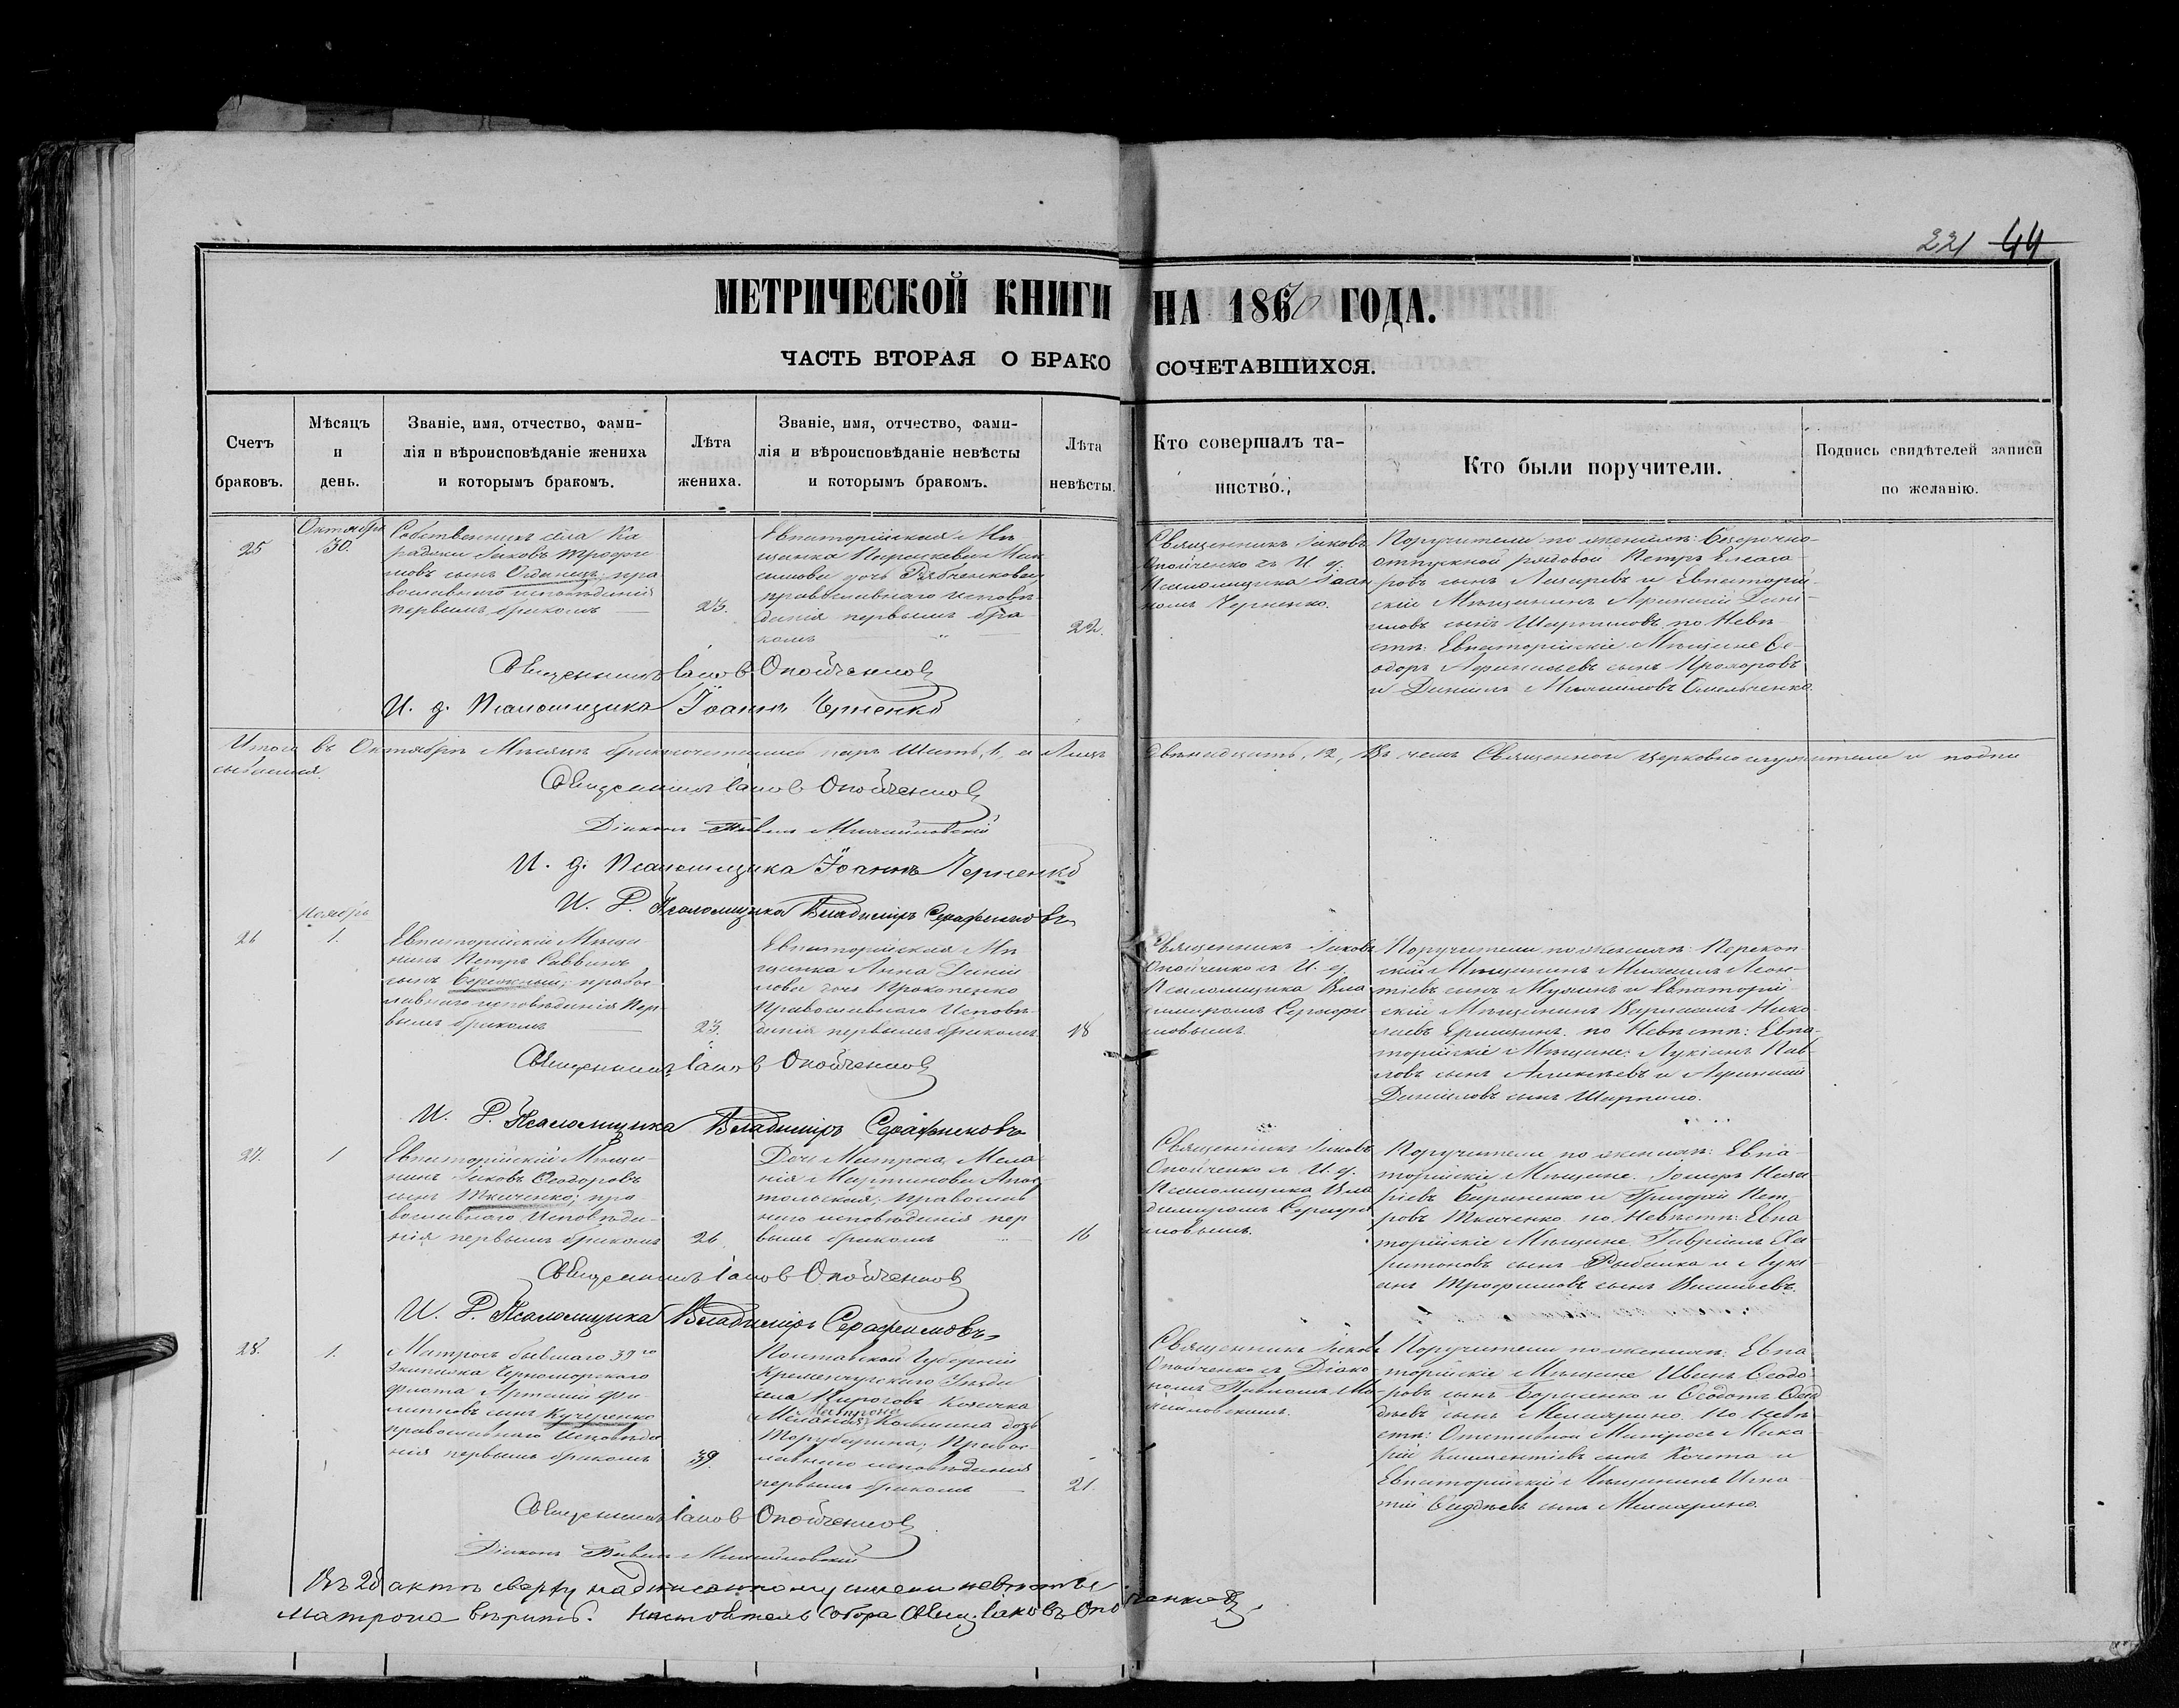 221 44
МЕТРИЧЕСКОЙ КНИГИ НА 1870 ГОДА.
ЧАСТЬ ВТОРАЯ О БРАКОСОЧЕТАВШИХСЯ.
Счетъ браковъ.
Мѣсяцъ и день.
Званіе, имя, отчество, фами-
лія и вѣроисповѣданіе жениха
и которымъ бракомъ.
Лѣта жениха.
Званіе, имя, отчество, фами-
лія и вѣроисповѣданіе невѣсты
и которымъ бракомъ.
Лѣта невѣсты.
Кто совершалъ та-
инство.
Кто были поручители.
Подпись свидѣтелей записи
по желанію.
25
Октября
30.
Собственникъ села Ка
Іаковъ
сынъ Одинецъ, пра
вославнаго исповѣданія
первымъ бракомъ
23.
Евпаторійская Мѣ
щанка Параскева Мак
симова дочь Рябченкова
православнаго исповѣ
данія первымъ бра
комъ
22.
Священникъ Іаковъ
Опойченко съ И. д.
Псаломщика Іоан
номъ Черненко.
Поручители по женихѣ: Безсрочно-
отпускной рядовой Петръ Елеаза-
ровъ сынъ Лазаревъ и Евпаторій-
скій Мѣщанинъ Афанасій Дани-
ловъ сынъ по Невѣ-
стѣ: Евпаторійскіе Мѣщане Ѳе-
одоръ Афанасьевъ сынъ Прохоровъ
и Даніилъ Михайловъ Омельченко.
Священникъ Іаковъ Опойченко
И. д. Псаломщика Іоаннъ Черненко
Итого въ Октябрѣ Мѣсяцѣ бракосочеталось паръ Шесть, 6, а Лицъ двѣнадцать, 12, Въ чемъ Священно и церковнослужители и подпи
сываемся.
Священникъ Іаковъ Опойченко
Діаконъ Павелъ Михайловскій
И. д. Псаломщика Іоаннъ Черненко
И. Д. Псаломщика Владиміръ Серафимовъ
26
Ноябрь
1.
Евпаторійскій Мѣща-
нинъ Петръ Саввинъ
сынъ Бережный; правос
лавнаго исповѣданія Пер-
вымъ бракомъ
23.
Евпаторійская Мѣ
щанка Анна Даніи
лова дочь Прокопенко
Православнаго Исповѣ
данія первымъ бракомъ
18
Священникъ Іаковъ
Опойченко съ И. д.
Псаломщика Вла
димиромъ Серафи
мовымъ.
Поручители по женихѣ: Перекоп-
скій Мѣщанинъ Михаилъ Леон-
тіевъ сынъ и Евпаторій-
скій Мѣщанинъ Нико
лаевъ по Невѣстѣ: Евпа-
торійскіе Мѣщане: Лукіанъ Пав-
ловъ сынъ и Афанасій
Даніиловъ сынъ Шарпило.
Священникъ Іаковъ Опойченко
И. Д. Псаломщика Владиміръ Серафимовъ
27.
1
Евпаторійскій Мѣща-
нинъ Іаковъ Ѳеодоровъ
сынъ Ткаченко; пра-
вославнаго Исповѣда-
нія первымъ бракомъ
26.
Дочь Матроса Мела
нія Мартинова Апос
тольская; Православ
наго исповѣданія пер
вымъ бракомъ
16
Священникъ Іаковъ
Опойченко съ И. д.
Псаломщика Вла
димиромъ Серафи
мовымъ.
Поручители по женихѣ: Евпа-
торійскіе Мѣщане: Наза-
ріевъ Бараненко и Григорій Пет-
ровъ Ткаченко по Невѣстѣ: Евпа
торійскіе Мѣщане Гавріилъ Ха-
ритоновъ сынъ Рыбалка и Луки
анъ Трофимовъ сынъ Васильевъ.
Священникъ Іаковъ Опойченко
И. Д. Псаломщика Владиміръ Серафимовъ
28.
1.
Матросъ бывшаго 39го
экипажа Черноморскаго
флота Артемій Фи-
липповъ сынъ Кучеренко
православнаго Исповѣда
нія первымъ бракомъ
39.
Полтавской Губерніи
Кременчугскаго Уѣзда
села Пироговъ Козачка
Матрона
Меланія Козьмина дочь
Торубарина; Правос-
лавнаго исповѣданія
первымъ бракомъ
21.
Священникъ Іаковъ
Опойченко съ Діако
номъ Павломъ Ми-
хайловскимъ.
Поручители по женихѣ: Евпа
торійскіе Мѣщане Иванъ Ѳеодо-
ровъ сынъ Борисенко и Ѳеодотъ
сынъ По Невѣ-
стѣ: Отставной Матросъ Мака-
рій сынъ Кочета и
Евпаторійскій Мѣщанинъ Игна-
тій сынъ
Священникъ Іаковъ Опойченко
Діаконъ Павелъ Михайловскій
Въ 28 актѣ сверху надписанному имени невѣсты
Матрона вѣрить. Настоятель Собора Свящ. Іаковъ Опойченко